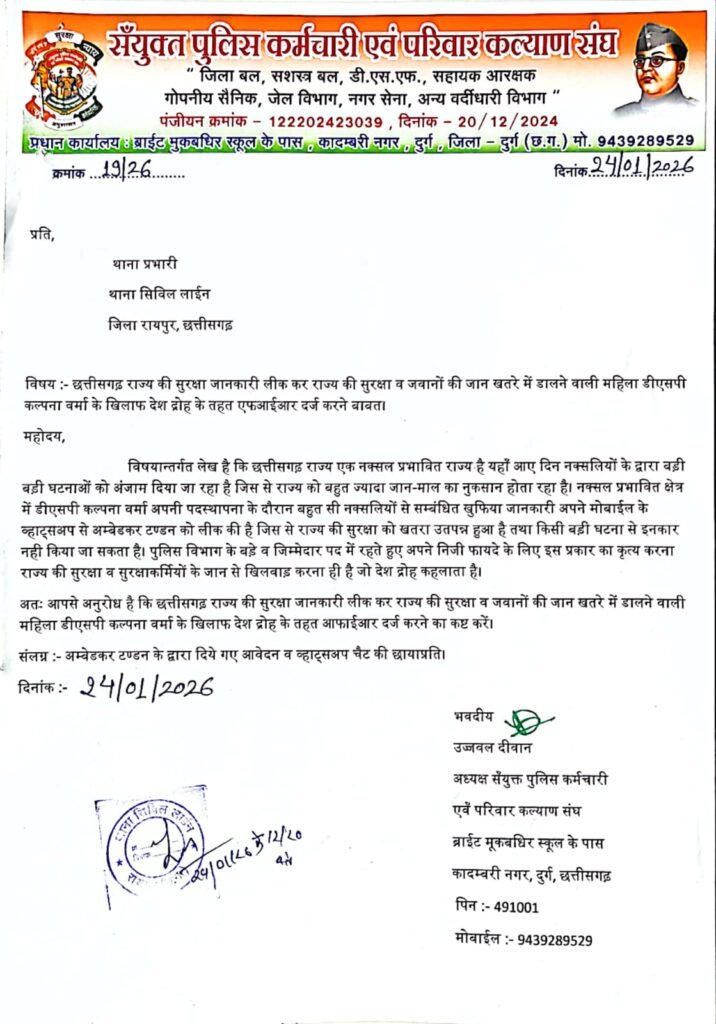 सँयुक्त पुलिस कर्मचारी एवं परिवार कल्याण संघ
" जिला बल, सशस्त्र बल, डी.एस.एफ., सहायक आरक्षक
गोपनीय सैनिक, जेल विभाग, नगर सेना, अन्य वर्दीधारी विभाग "
पंजीयन क्रमांक – 122202423039 , दिनांक – 20/12/2024
प्रधान कार्यालय : ब्राईट मुकबधिर स्कूल के पास , कादम्बरी नगर , दुर्ग , जिला – दुर्ग (छ.ग.) मो. 9439289529
क्रमांक ...19/26........
दिनांक.24/01/2026
प्रति,
थाना प्रभारी
थाना सिविल लाईन
जिला रायपुर, छत्तीसगढ़
विषय :- छत्तीसगढ़ राज्य की सुरक्षा जानकारी लीक कर राज्य की सुरक्षा व जवानों की जान खतरे में डालने वाली महिला डीएसपी
कल्पना वर्मा के खिलाफ देश द्रोह के तहत एफआईआर दर्ज करने बाबत।
महोदय,
विषयान्तर्गत लेख है कि छत्तीसगढ़ राज्य एक नक्सल प्रभावित राज्य है यहाँ आए दिन नक्सलियों के द्वारा बड़ी
बड़ी घटनाओं को अंजाम दिया जा रहा है जिस से राज्य को बहुत ज्यादा जान-माल का नुकसान होता रहा है। नक्सल प्रभावित क्षेत्र
में डीएसपी कल्पना वर्मा अपनी पदस्थापना के दौरान बहुत सी नक्सलियों से सम्बंधित खुफिया जानकारी अपने मोबाईल के
व्हाट्सअप से अम्बेडकर टण्डन को लीक की है जिस से राज्य की सुरक्षा को खतरा उतपन्न हुआ है तथा किसी बड़ी घटना से इनकार
नही किया जा सकता है। पुलिस विभाग के बड़े व जिम्मेदार पद में रहते हुए अपने निजी फायदे के लिए इस प्रकार का कृत्य करना
राज्य की सुरक्षा व सुरक्षाकर्मियों के जान से खिलवाड़ करना ही है जो देश द्रोह कहलाता है।
अतः आपसे अनुरोध है कि छत्तीसगढ़ राज्य की सुरक्षा जानकारी लीक कर राज्य की सुरक्षा व जवानों की जान खतरे में डालने वाली
महिला डीएसपी कल्पना वर्मा के खिलाफ देश द्रोह के तहत आफाईआर दर्ज करने का कष्ट करें।
संलग्न :- अम्बेडकर टण्डन के द्वारा दिये गए आवेदन व व्हाट्सअप चैट की छायाप्रति।
दिनांक :- 24/01/2026
भवदीय
उज्जवल दीवान
अध्यक्ष सँयुक्त पुलिस कर्मचारी
एवँ परिवार कल्याण संघ
ब्राईट मूकबधिर स्कूल के पास
कादम्बरी नगर, दुर्ग, छत्तीसगढ़
पिन :- 491001
मोबाईल :- 9439289529
थाना सिविल लाईन
24/01/26 के 12/20
बजे